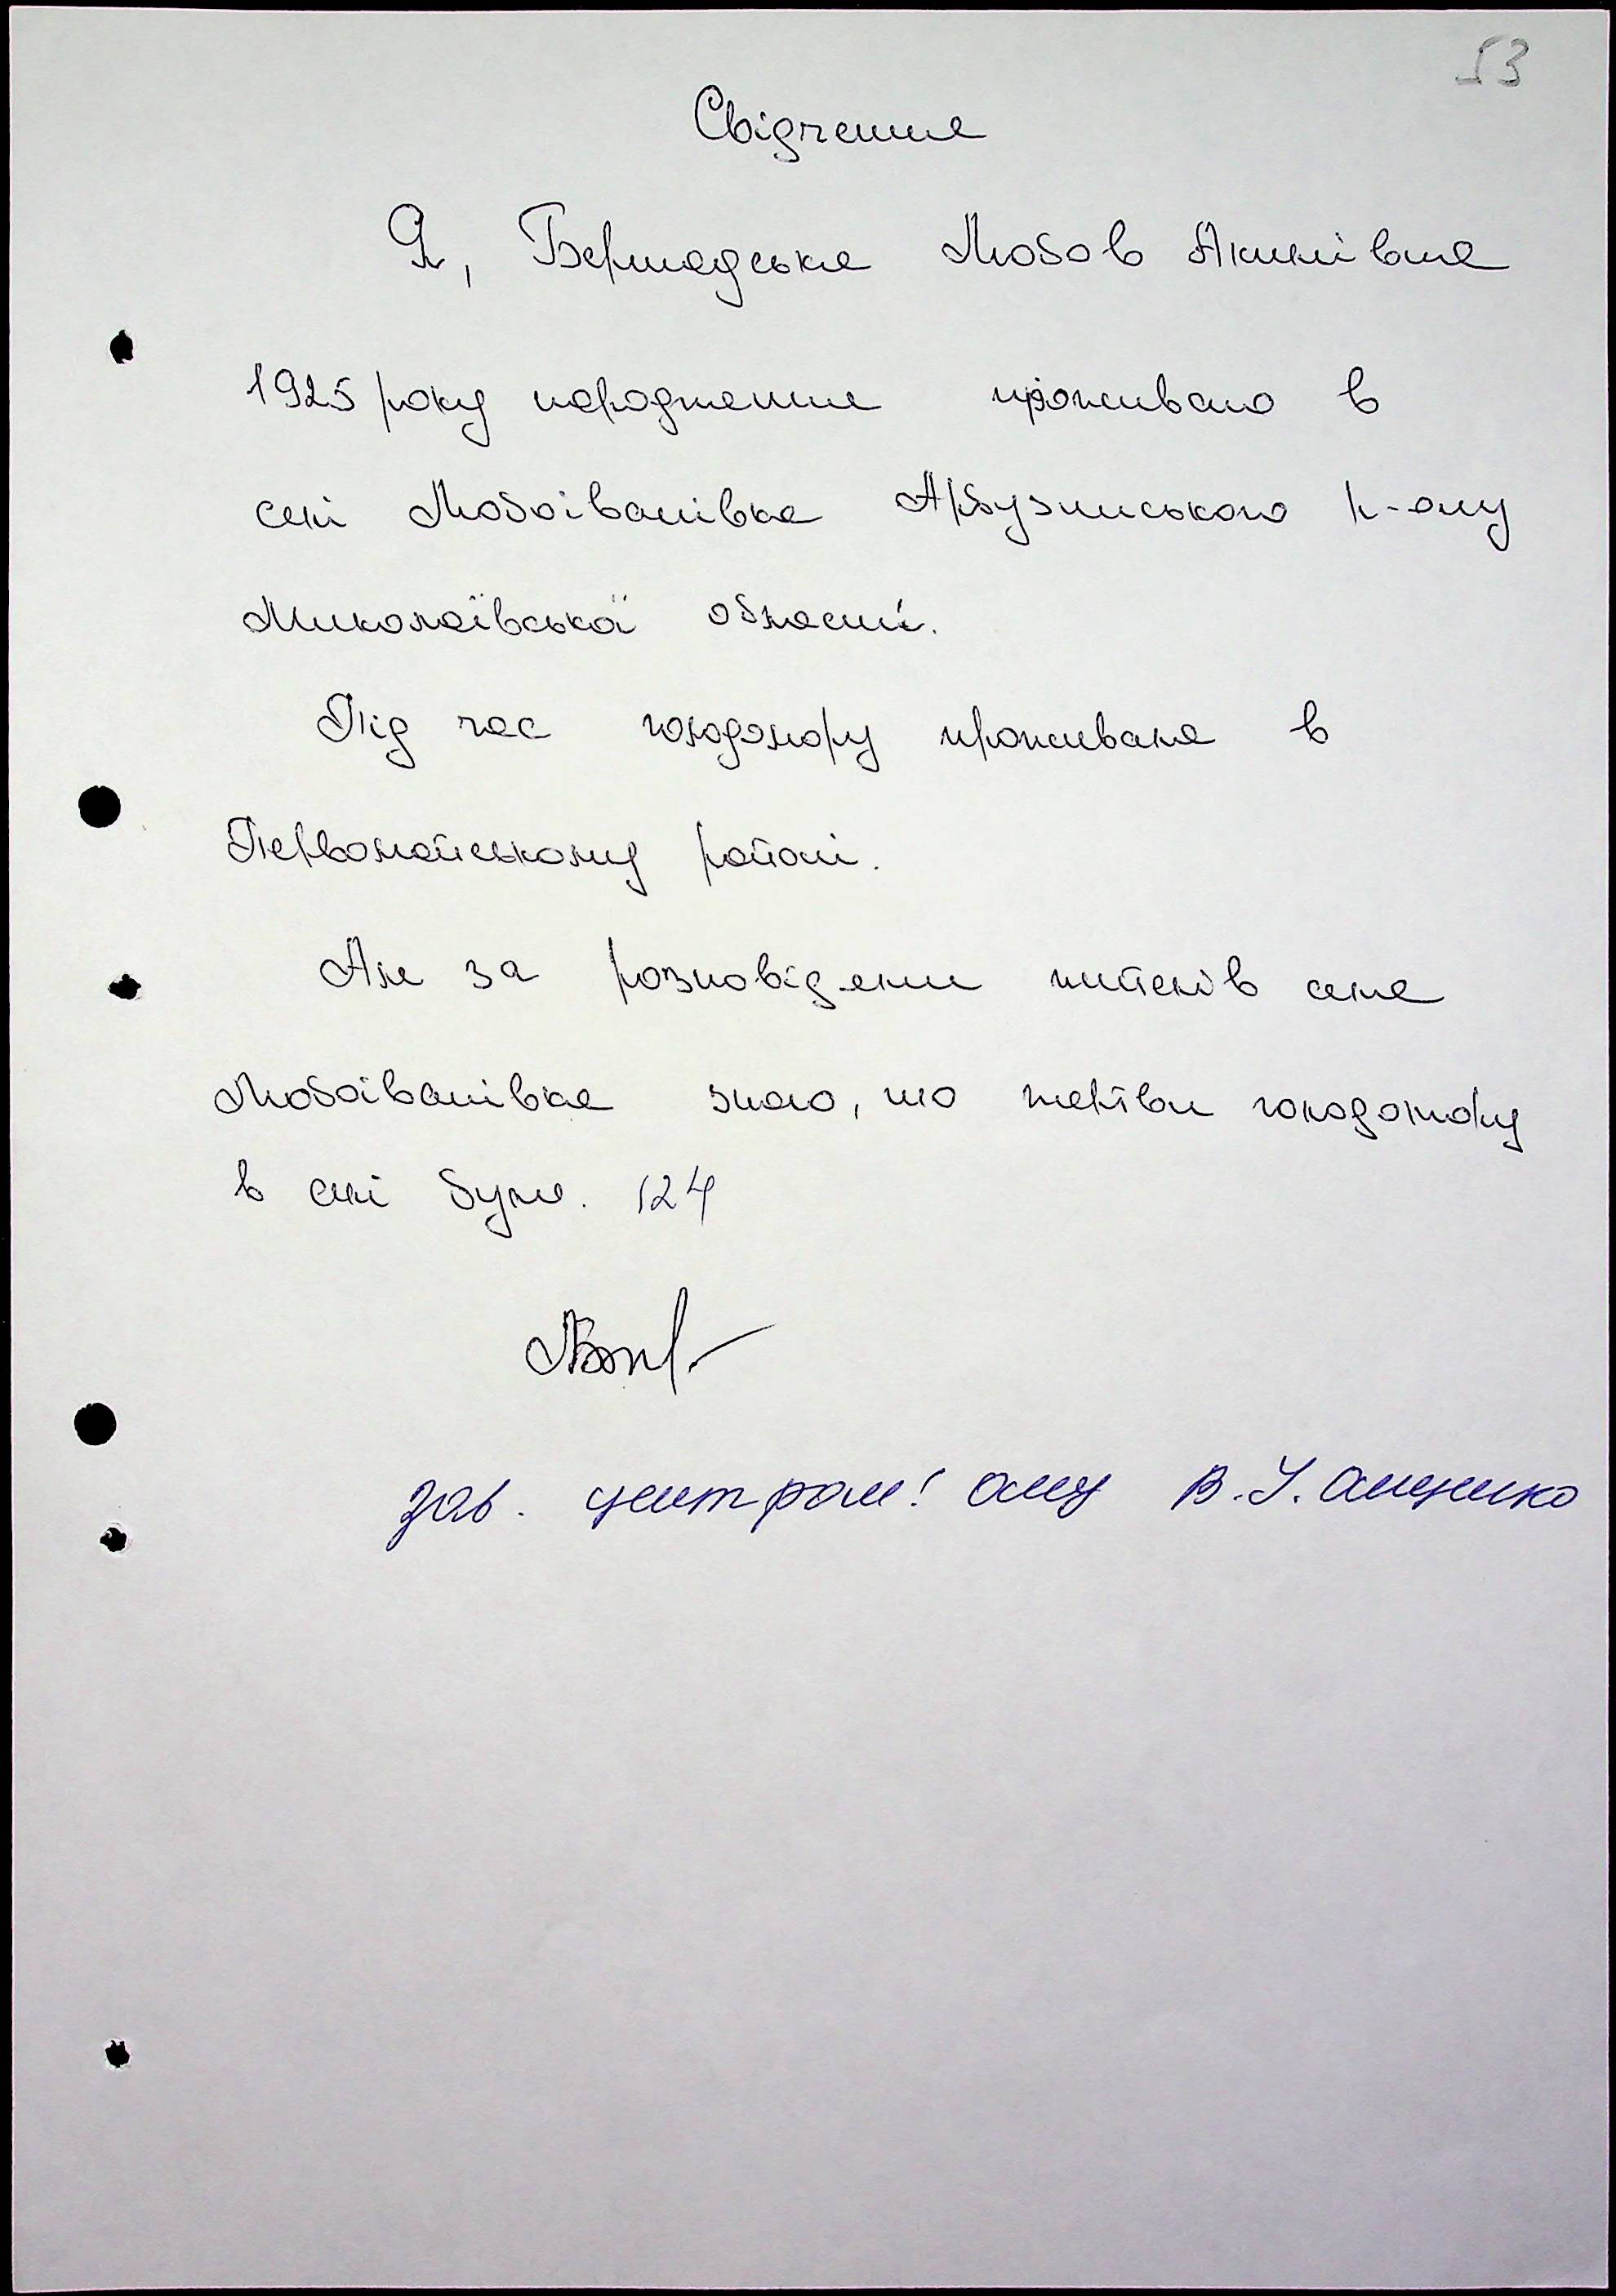 53
Свідчення
Я, Бершадська Любов Акимівна
1925 року народження проживаю в
селі Любоіванівка Арбузинського р-ону
Миколаївської області.
Під час голодомору проживала в
Первомайському районі.
Але за розповідями жителів села
Любоіванівка знаю, що жертви голодомору
в селі були. 124
зав. центром: ощу В. У. Ющенко